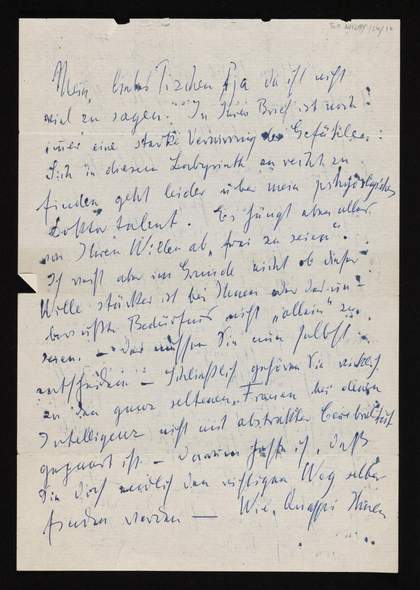 Mein liebes Tischen tja da ist nicht
viel zu sagen." In Ihrem Brief ist noch
immer eine starke Verwirrung der Gefühle:
Sich in diesem Labyrinth zurecht zu
finden geht leider über mein psychologisches
talent. Es hängt aber alles
von Ihrem Willen ab, "frei zu sein".
Ich weiß aber im Grunde nicht ob dieser
Wille stärker ist bei Ihnen oder das un-
bewußte Bedürfnis nicht "allein" zu
sein. – Das müssen Sie nun selbst
entscheiden – Schließlich gehören Sie wirklich
zu den ganz seltenen Frauen bei denen
Intelligenz nicht mit abstrakter
gepaart ist – Darum hoffe ich, daß
Sie doch endlich den richtigen Weg selber
finden werden — Wie, Quappi Ihnen